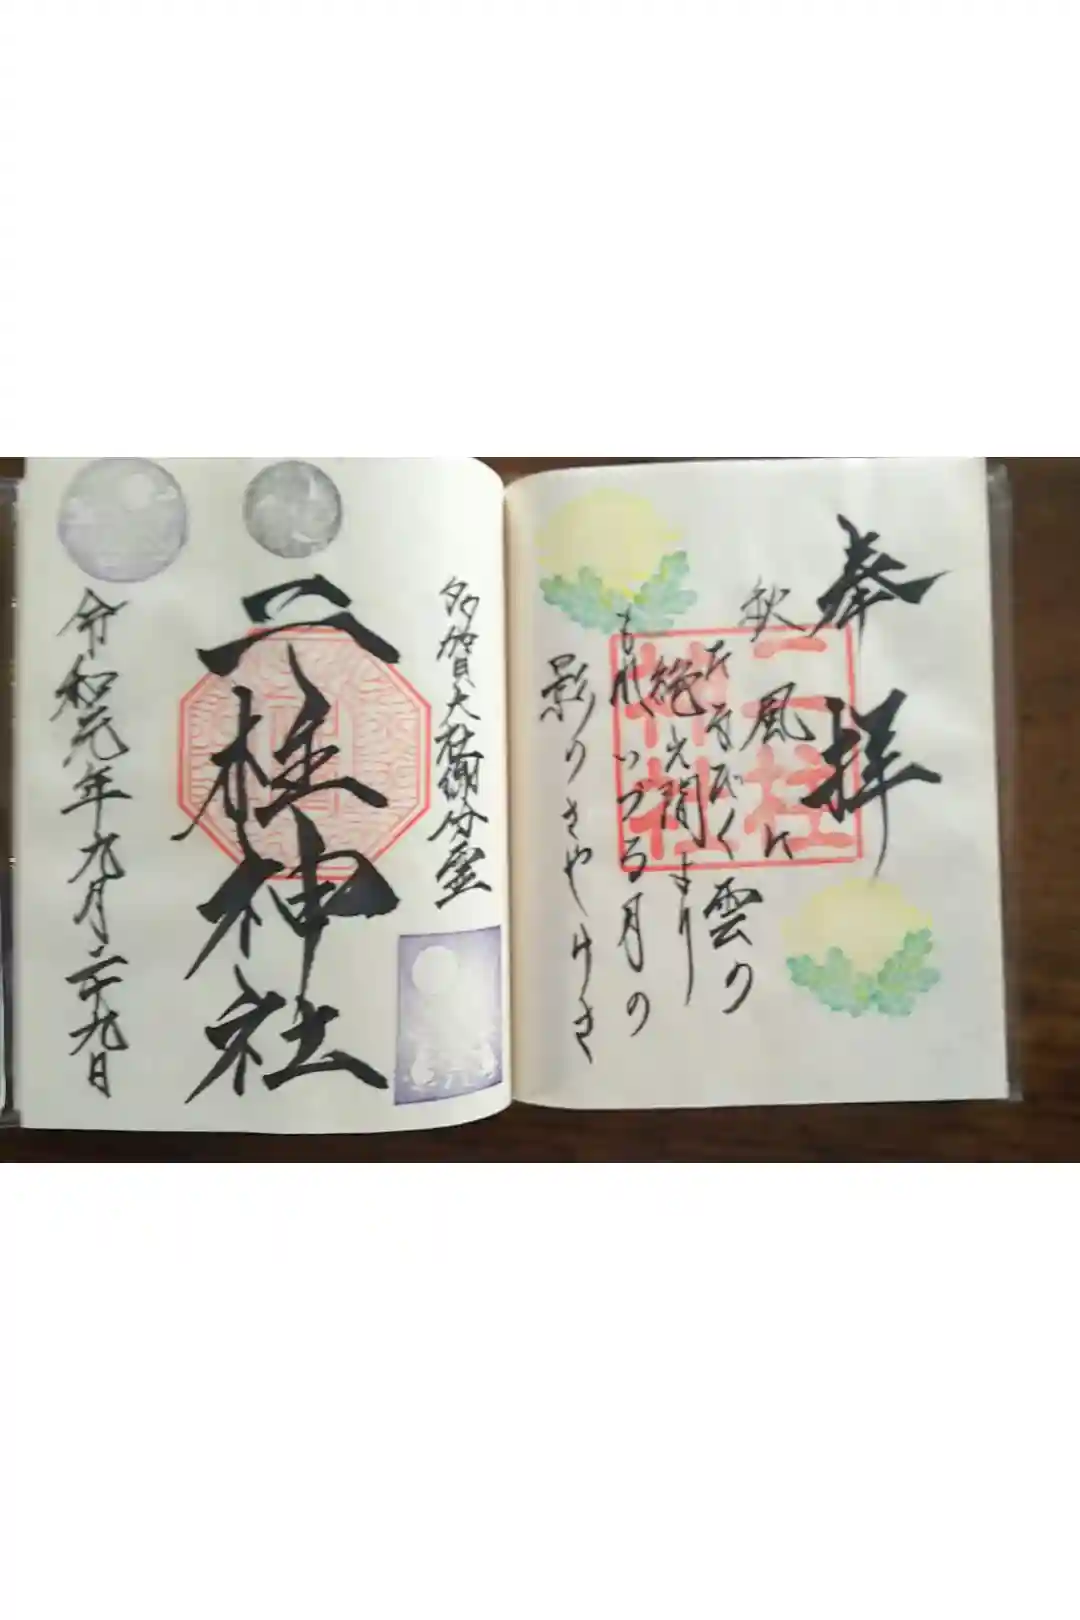 奉拝
秋風に
たなびく雲の
絶え間より
もれいづる月の
影のさやけさ
二柱
神社
多賀大社御分霊
二柱神社
令和元年九月二十九日